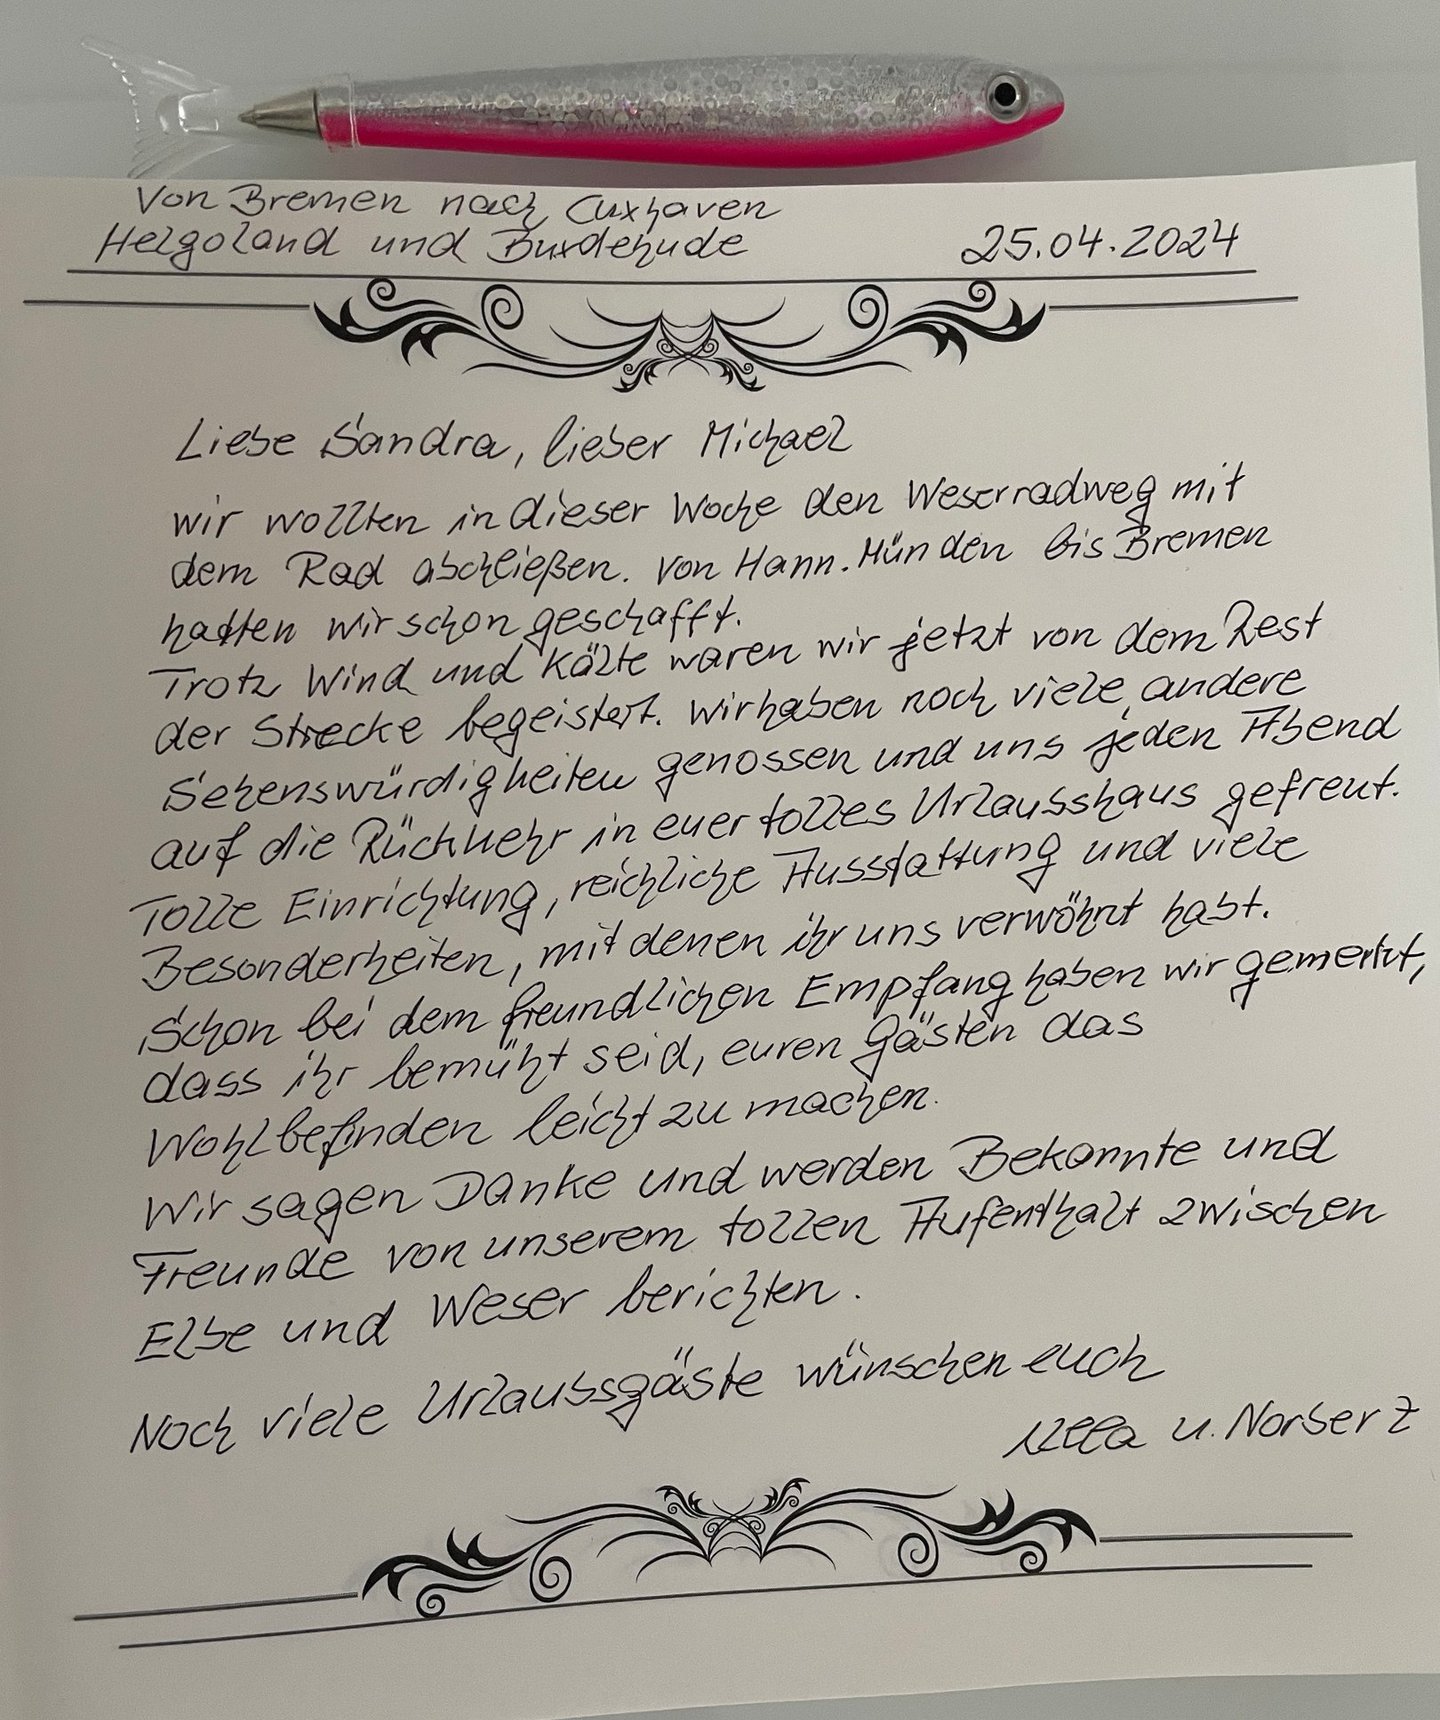 Von Bremen nach Cuxhaven
Helgoland und Buxdehude 25.04.2024
Liebe Sandra, lieber Michael
wir wollten in dieser Woche den Weserradweg mit
dem Rad abschließen. Von Hann. Münden bis Bremen
hatten wir schon geschafft.
Trotz Wind und Kälte waren wir jetzt von dem Rest
der Strecke begeistert. Wir haben noch viele andere
Sehenswürdigkeiten genossen und uns jeden Abend
auf die Rückkehr in euer tolles Urlaubshaus gefreut.
Tolle Einrichtung, reichliche Ausstattung und viele
Besonderheiten, mit denen ihr uns verwöhnt habt.
Schon bei dem freundlichen Empfang haben wir gemerkt,
dass ihr bemüht seid, euren Gästen das
Wohlbefinden leicht zu machen.
Wir sagen Danke und werden Bekannte und
Freunde von unserem tollen Aufenthalt zwischen
Elbe und Weser berichten.
Noch viele Urlaubsgäste wünschen euch
Ulla u. Norbert